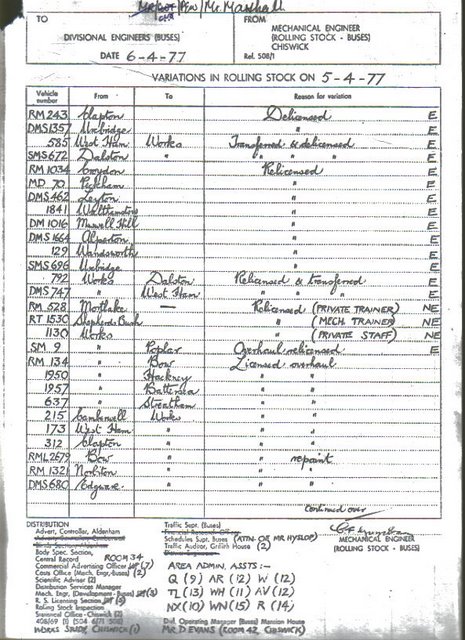 Mr Marshall
TO
DIVISIONAL ENGINEERS (BUSES)
DATE 6-4-77
FROM
MECHANICAL ENGINEER
(ROLLING STOCK - BUSES)
CHISWICK
Ref. 508/1
VARIATIONS IN ROLLING STOCK ON 5-4-77
Vehicle number From To Reason for variation
RM 243 Clapton Delicensed E
DMS 1357 Uxbridge " E
585 West Ham Works Transferred & delicensed E
SMS 672 Dalston " " " " E
RM 1034 Croydon Relicensed E
MD 70 Peckham " E
DMS 462 Leyton " E
1841 Walthamstow " E
DM 1016 Muswell Hill " E
DMS 1664 Alperton " E
129 Wandsworth " E
SMS 696 Uxbridge " E
792 Works Dalston Relicensed & transferred E
DMS 747 " West Ham " " " E
RM 528 Mortlake — Relicensed (PRIVATE TRAINER) NE
RT 1530 Shepherds Bush " (MECH. TRAINER) NE
1130 Works " (PRIVATE STAFF) NE
SM 9 " Poplar Overhaul relicensed E
RM 134 " Bow Licensed overhaul
1950 " Hackney " "
1957 " Battersea " "
637 " Streatham " "
215 Camberwell Works " "
173 West Ham " " "
312 Clapton " " "
RML 2679 Bow " " repaint
RM 1321 Norbiton " " "
DMS 680 Edgware " " "
Continued over
DISTRIBUTION
Advert, Controller, Aldenham
Body Spec. Section,
Central Record ROOM 34
Commercial Advertising Officer (7)
Costs Office (Mech. Engr. Buses) (2)
Scientific Adviser (2)
Distribution Services Manager
Mech. Engr. (Development - Buses) (3)
R. S. Licensing Section
Rolling Stock Inspection
Statistical Office - Chiswick (2)
WORKS STUDY, CHISWICK (1)
Traffic Supt. (Buses)
Schedules Supt. Buses (ATTN. OF MR HYSLOP)
Traffic Auditor, Griffith House (2)
AREA ADMIN. ASSTS :-
Q (9) AR (12) W (12)
TL (13) WH (11) AV (12)
NX (10) WN (15) R (14)
Dist. Operating Manager (Buses) Mansion House
MR. D EVANS (ROOM 42, CHISWICK)
MECHANICAL ENGINEER
(ROLLING STOCK - BUSES)